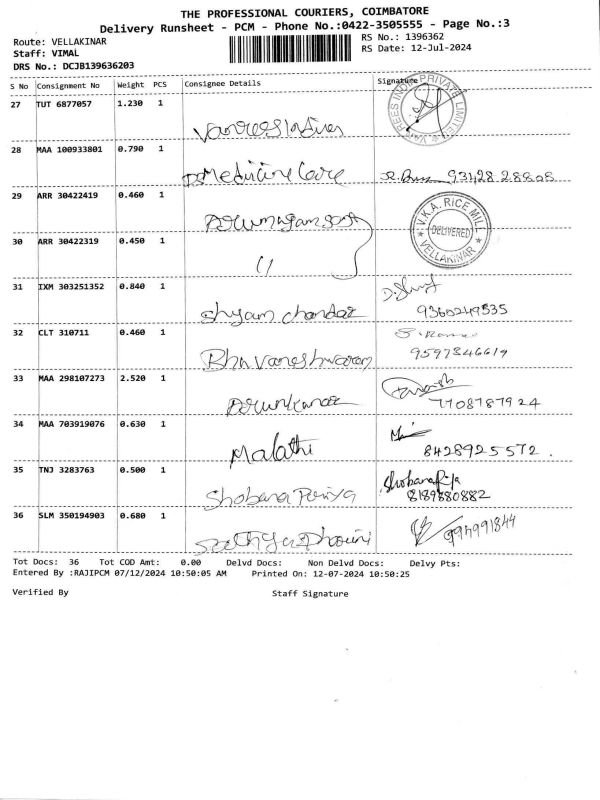 THE PROFESSIONAL COURIERS, COIMBATORE
Delivery Runsheet - PCM - Phone No.:0422-3505555 - Page No.:3
Route: VELLAKINAR RS No.: 1396362
Staff: VIMAL RS Date: 12-Jul-2024
DRS No.: DCJB139636203
S No Consignment No Weight PCS Consignee Details Signature
27 TUT 6877057 1.230 1
VANREES INDIA PRIVATE LIMITED
28 MAA 100933801 0.790 1 Medicine Care 93428 28808
29 ARR 30422419 0.460 1
V.K.A. RICE MILL
DELIVERED
VELLAKINAR
30 ARR 30422319 0.450 1
31 IXM 303251352 0.840 1 Shyam chandar 9360249535
32 CLT 310711 0.460 1 Bhuvaneshwaran 9597346619
33 MAA 298107273 2.520 1 Arunkumar 7708787924
34 MAA 703919076 0.630 1 Malathi 8428925572.
35 TNJ 3283763 0.500 1 Shobana Priya Shobana Priya
8189880882
36 SLM 350194903 0.680 1
Tot Docs: 36 Tot COD Amt: 0.00 Delvd Docs: Non Delvd Docs: Delvy Pts:
Entered By :RAJIPCM 07/12/2024 10:50:05 AM Printed On: 12-07-2024 10:50:25
Verified By Staff Signature